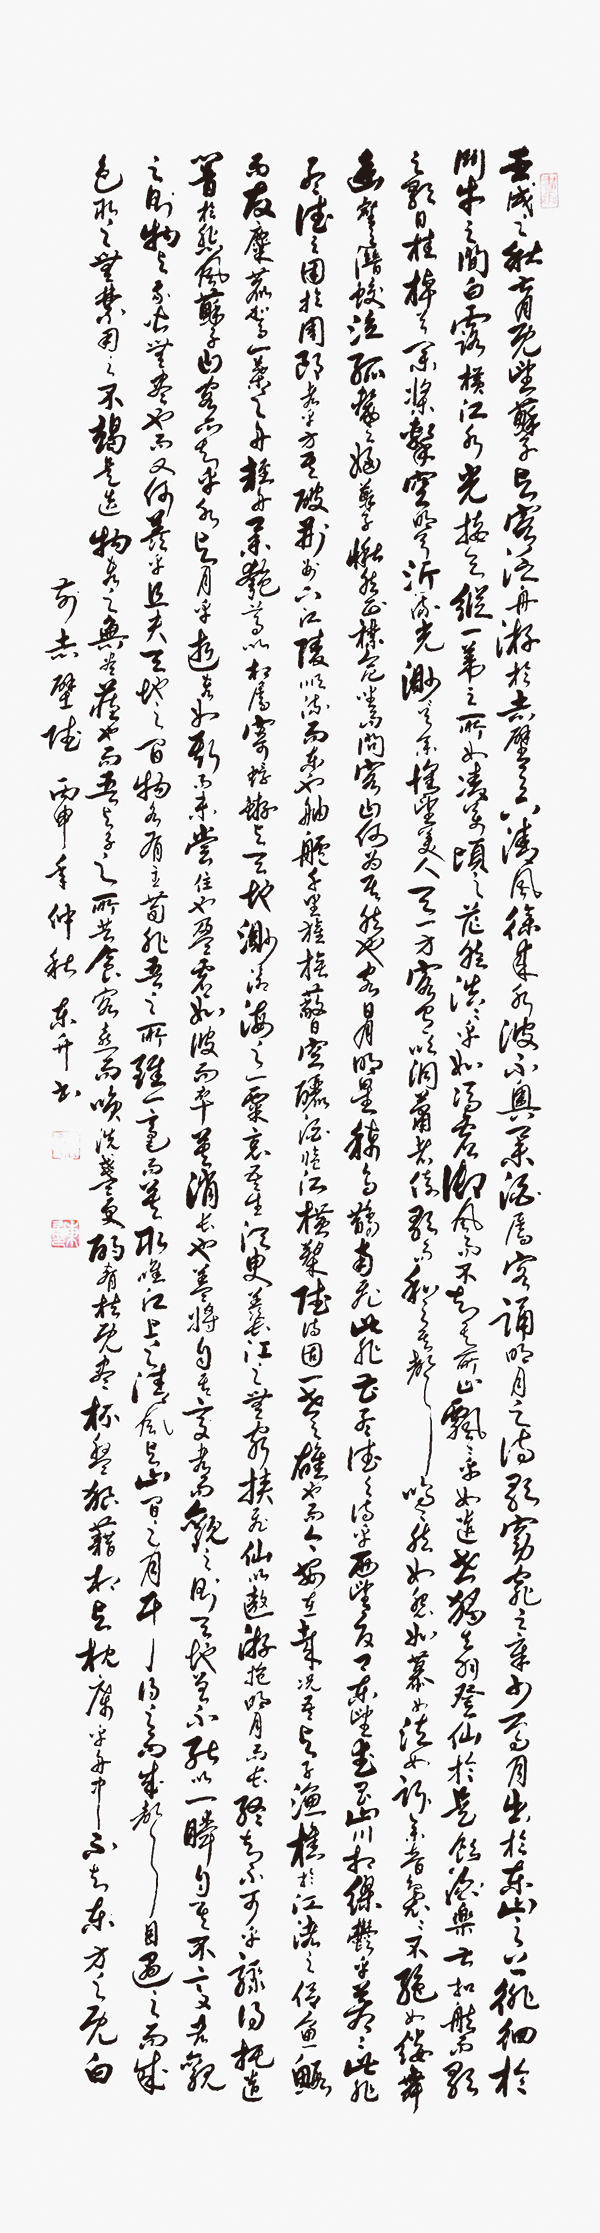 壬戌之秋七月既望蘇子与客泛舟游於赤壁之下清風徐来水波不興举酒属客誦明月之诗歌窈窕之章少焉月出於东山之上徘徊於
鬥牛之間白露横江水光接天縱一葦之所如凌萬頃之茫然浩浩乎如馮虚御風而不知其所止飄飄乎如遗世独立羽化登仙於是飲酒樂甚扣舷而歌
之歌曰桂棹兮蘭桨擊空明兮泝流光渺渺兮予懷望美人兮天一方客有吹洞蕭者倚歌而和之其声嗚嗚然如怨如慕如泣如訴余音袅袅不絕如縷舞
幽壑之潜蛟泣孤舟之嫠婦蘇子愀然正襟危坐而問客曰何为其然也客曰月明星稀烏鵲南飛此非曹孟德之诗乎西望夏口东望武昌山川相缪鬱乎蒼蒼此非
孟德之困於周郎者乎方其破荆州下江陵順流而东也舳艫千里旌旗蔽空釃酒临江横槊赋诗固一世之雄也而今安在哉况吾与子渔樵於江渚之上侣鱼鰕
而友麋鹿驾一葉之舟举匏尊以相属寄蜉蝣与天地渺滄海之一粟哀吾生之须臾羡长江之無穷挟飛仙以遨游抱明月而长终知不可乎骤得托遗
響於悲風蘇子曰客亦知夫水与月乎逝者如斯而未嘗往也盈虚如彼而卒莫消长也盖将自其变者而觀之则天地曾不能以一瞬自其不变者觀
之则物与我皆無尽也而又何羡乎且夫天地之间物各有主苟非吾之所有雖一毫而莫取唯江上之清風与山间之月耳得之而成声目遇之而成
色取之無禁用之不竭是造物者之無尽藏也而吾与子之所共食客喜而笑洗盞更酌肴核既尽杯盤狼藉相与枕藉乎舟中不知东方之既白
前赤壁赋 丙申年仲秋 东升书